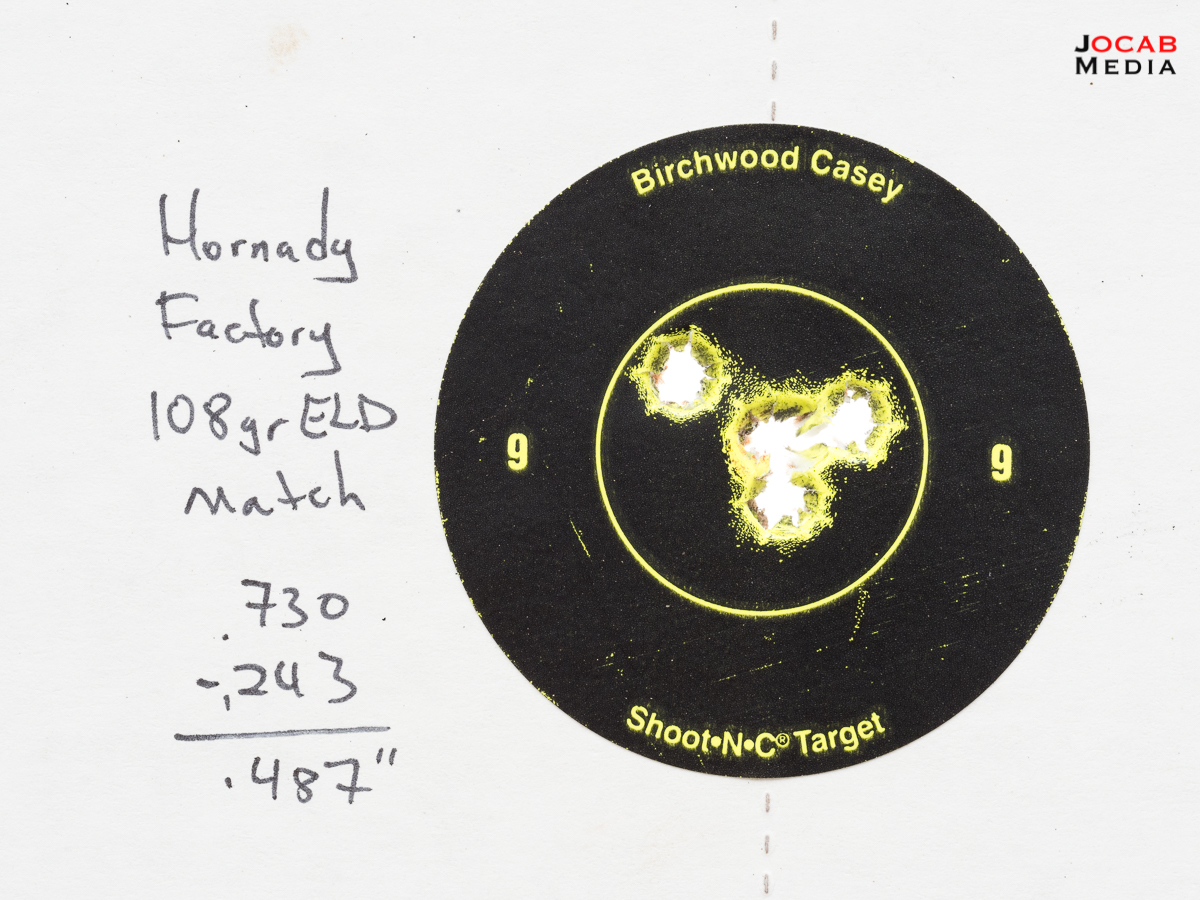 JOCAB
MEDIA
Birchwood Casey
Hornady
Factory
108gr ELD
Match
.730
-.243
.487"
9
9
Shoot•N•C® Target